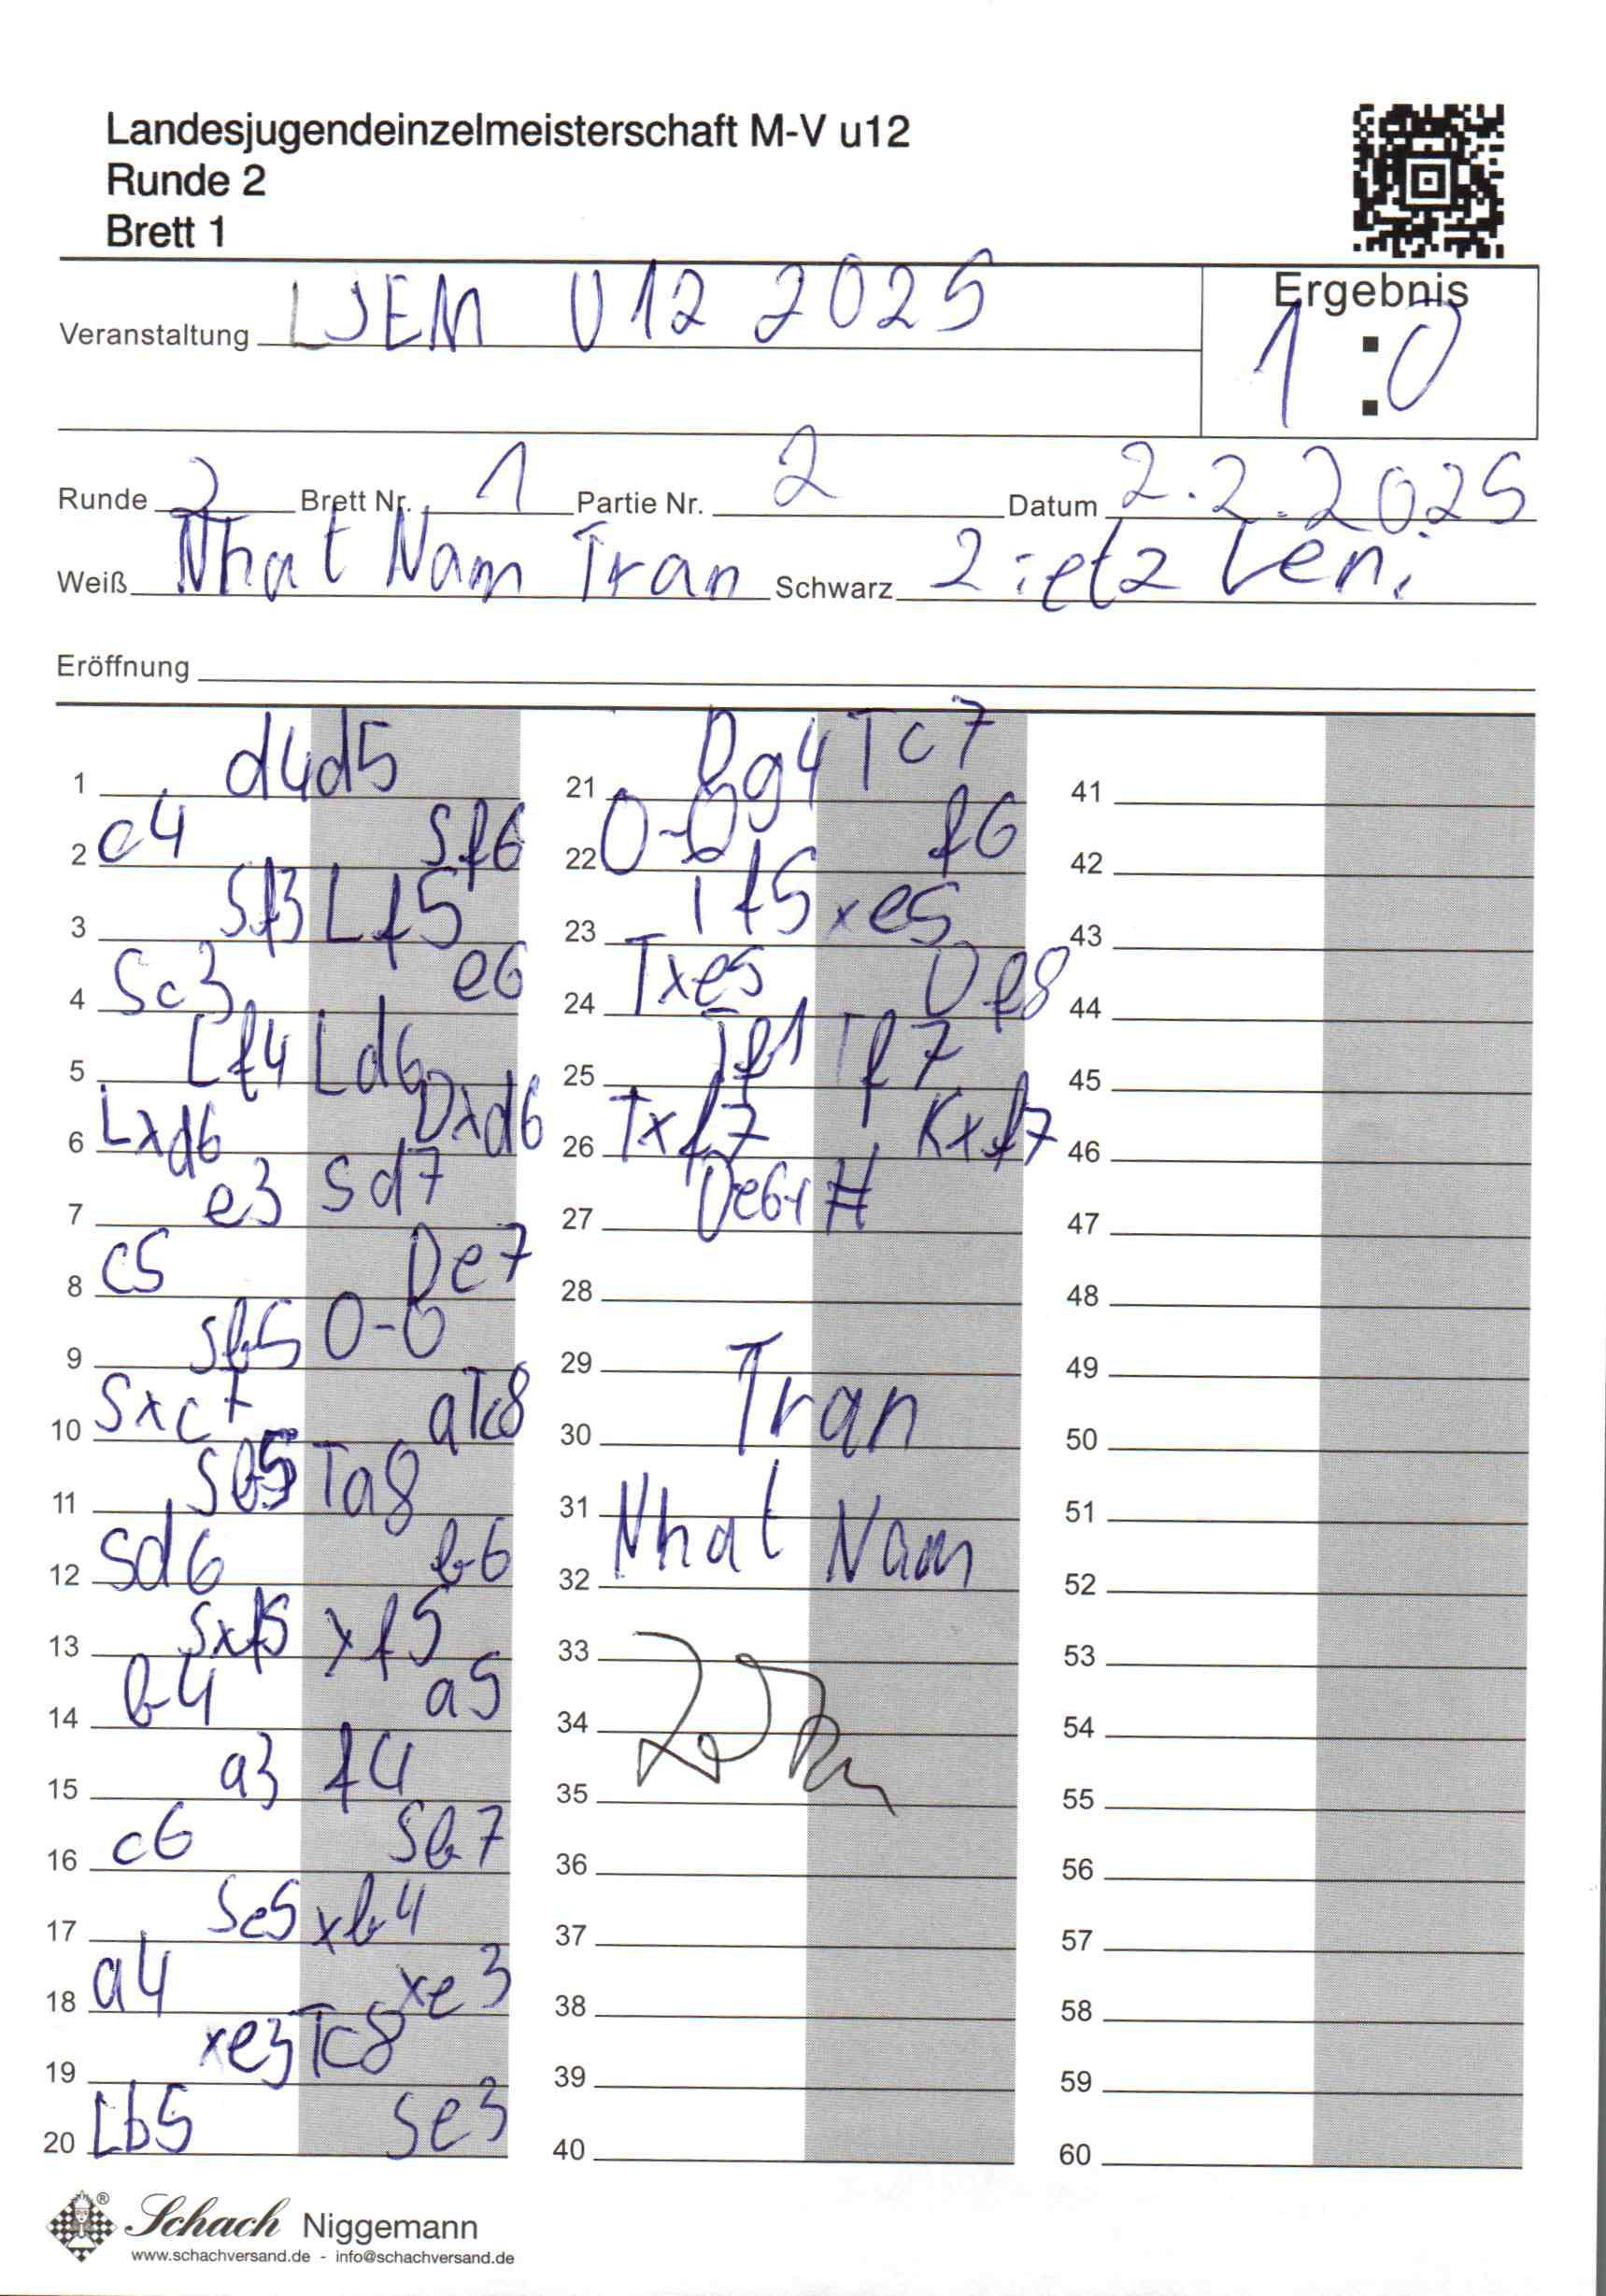 Landesjugendeinzelmeisterschaft M-V u12
Runde 2
Brett 1
Veranstaltung LJEM U12 2025
Ergebnis
1:0
Runde 2 Brett Nr. 1 Partie Nr. 2 Datum 2.2.2025
Weiß Nhat Nam Tran Schwarz Zietz Leni
Eröffnung
1 d4 d5
2 c4 Sf6
3 Sf3 Lf5
4 Sc3 e6
5 Lf4 Ld6
6 Lxd6 Dxd6
7 e3 Sd7
8 c5 De7
9 Sb5 0-0
10 Sxc7 aTc8
11 Sb5 Ta8
12 Sd6 b6
13 Sxf5 xf5
14 b4 a5
15 a3 f4
16 c6 Sb7
17 Se5 xb4
18 a4 xe3
19 xe3 Tc8
20 Lb5 Se3
21 Dg4 Tc7
22 0-0 f6
23 Tf5 xe5
24 Txe5 Df8
25 Tf1 Tf7
26 Txf7 Kxf7
27 De6+#
28
29
30 Tran
31
32 Nhat Nam
33
34
35
36
37
38
39
40
41
42
43
44
45
46
47
48
49
50
51
52
53
54
55
56
57
58
59
60
Schach Niggemann
www.schachversand.de - info@schachversand.de